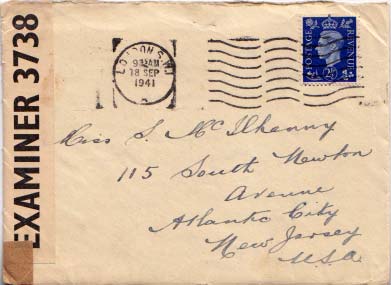 EXAMINER 3738
LONDON S.W.1
9 15 AM
18 SEP
1941
POSTAGE REVENUE
2½
Miss S. McIlhenny
115 South Newton
Avenue
Atlantic City
New Jersey
U.S.A.